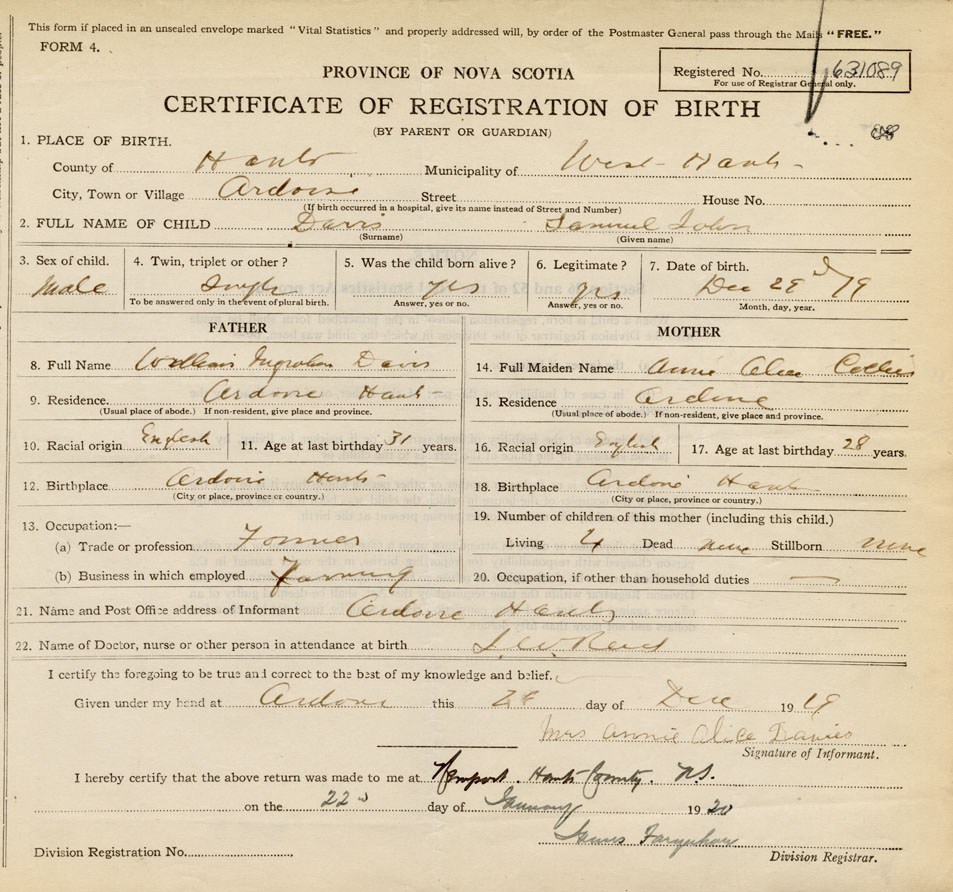 This form if placed in an unsealed envelope marked "Vital Statistics" and properly addressed will, by order of the Postmaster General pass through the Mails "FREE."
FORM 4.
PROVINCE OF NOVA SCOTIA
Registered No. 631089
For use of Registrar General only.
CERTIFICATE OF REGISTRATION OF BIRTH
(BY PARENT OR GUARDIAN)
1. PLACE OF BIRTH.
County of Hants Municipality of West Hants
City, Town or Village Ardoise Street House No.
(If birth occurred in a hospital, give its name instead of Street and Number)
2. FULL NAME OF CHILD Davis Samuel John
(Surname) (Given name)
3. Sex of child. 4. Twin, triplet or other? 5. Was the child born alive? 6. Legitimate? 7. Date of birth.
Male Single yes yes Dec 19
To be answered only in the event of plural birth. Answer, yes or no. Answer, yes or no. Month, day, year.
FATHER MOTHER
8. Full Name William Davis 14. Full Maiden Name Annie Alice
9. Residence Ardoise Hants 15. Residence Ardoise
(Usual place of abode.) If non-resident, give place and province. (Usual place of abode.) If non-resident, give place and province.
10. Racial origin English 11. Age at last birthday 31 years. 16. Racial origin English 17. Age at last birthday 28 years.
12. Birthplace Ardoise Hants 18. Birthplace Ardoise Hants
(City or place, province or country.) (City or place, province or country.)
13. Occupation:— 19. Number of children of this mother (including this child.)
(a) Trade or profession Farmer Living 4 Dead none Stillborn none
(b) Business in which employed Farming 20. Occupation, if other than household duties —
21. Name and Post Office address of Informant Ardoise Hants
22. Name of Doctor, nurse or other person in attendance at birth Reid
I certify the foregoing to be true and correct to the best of my knowledge and belief.
Given under my hand at Ardoise this day of Dec 1919
Mrs Annie Alice Davies
Signature of Informant.
I hereby certify that the above return was made to me at Newport. Hants County. N.S.
on the 22 day of January 1920
James Farquhar
Division Registration No. Division Registrar.